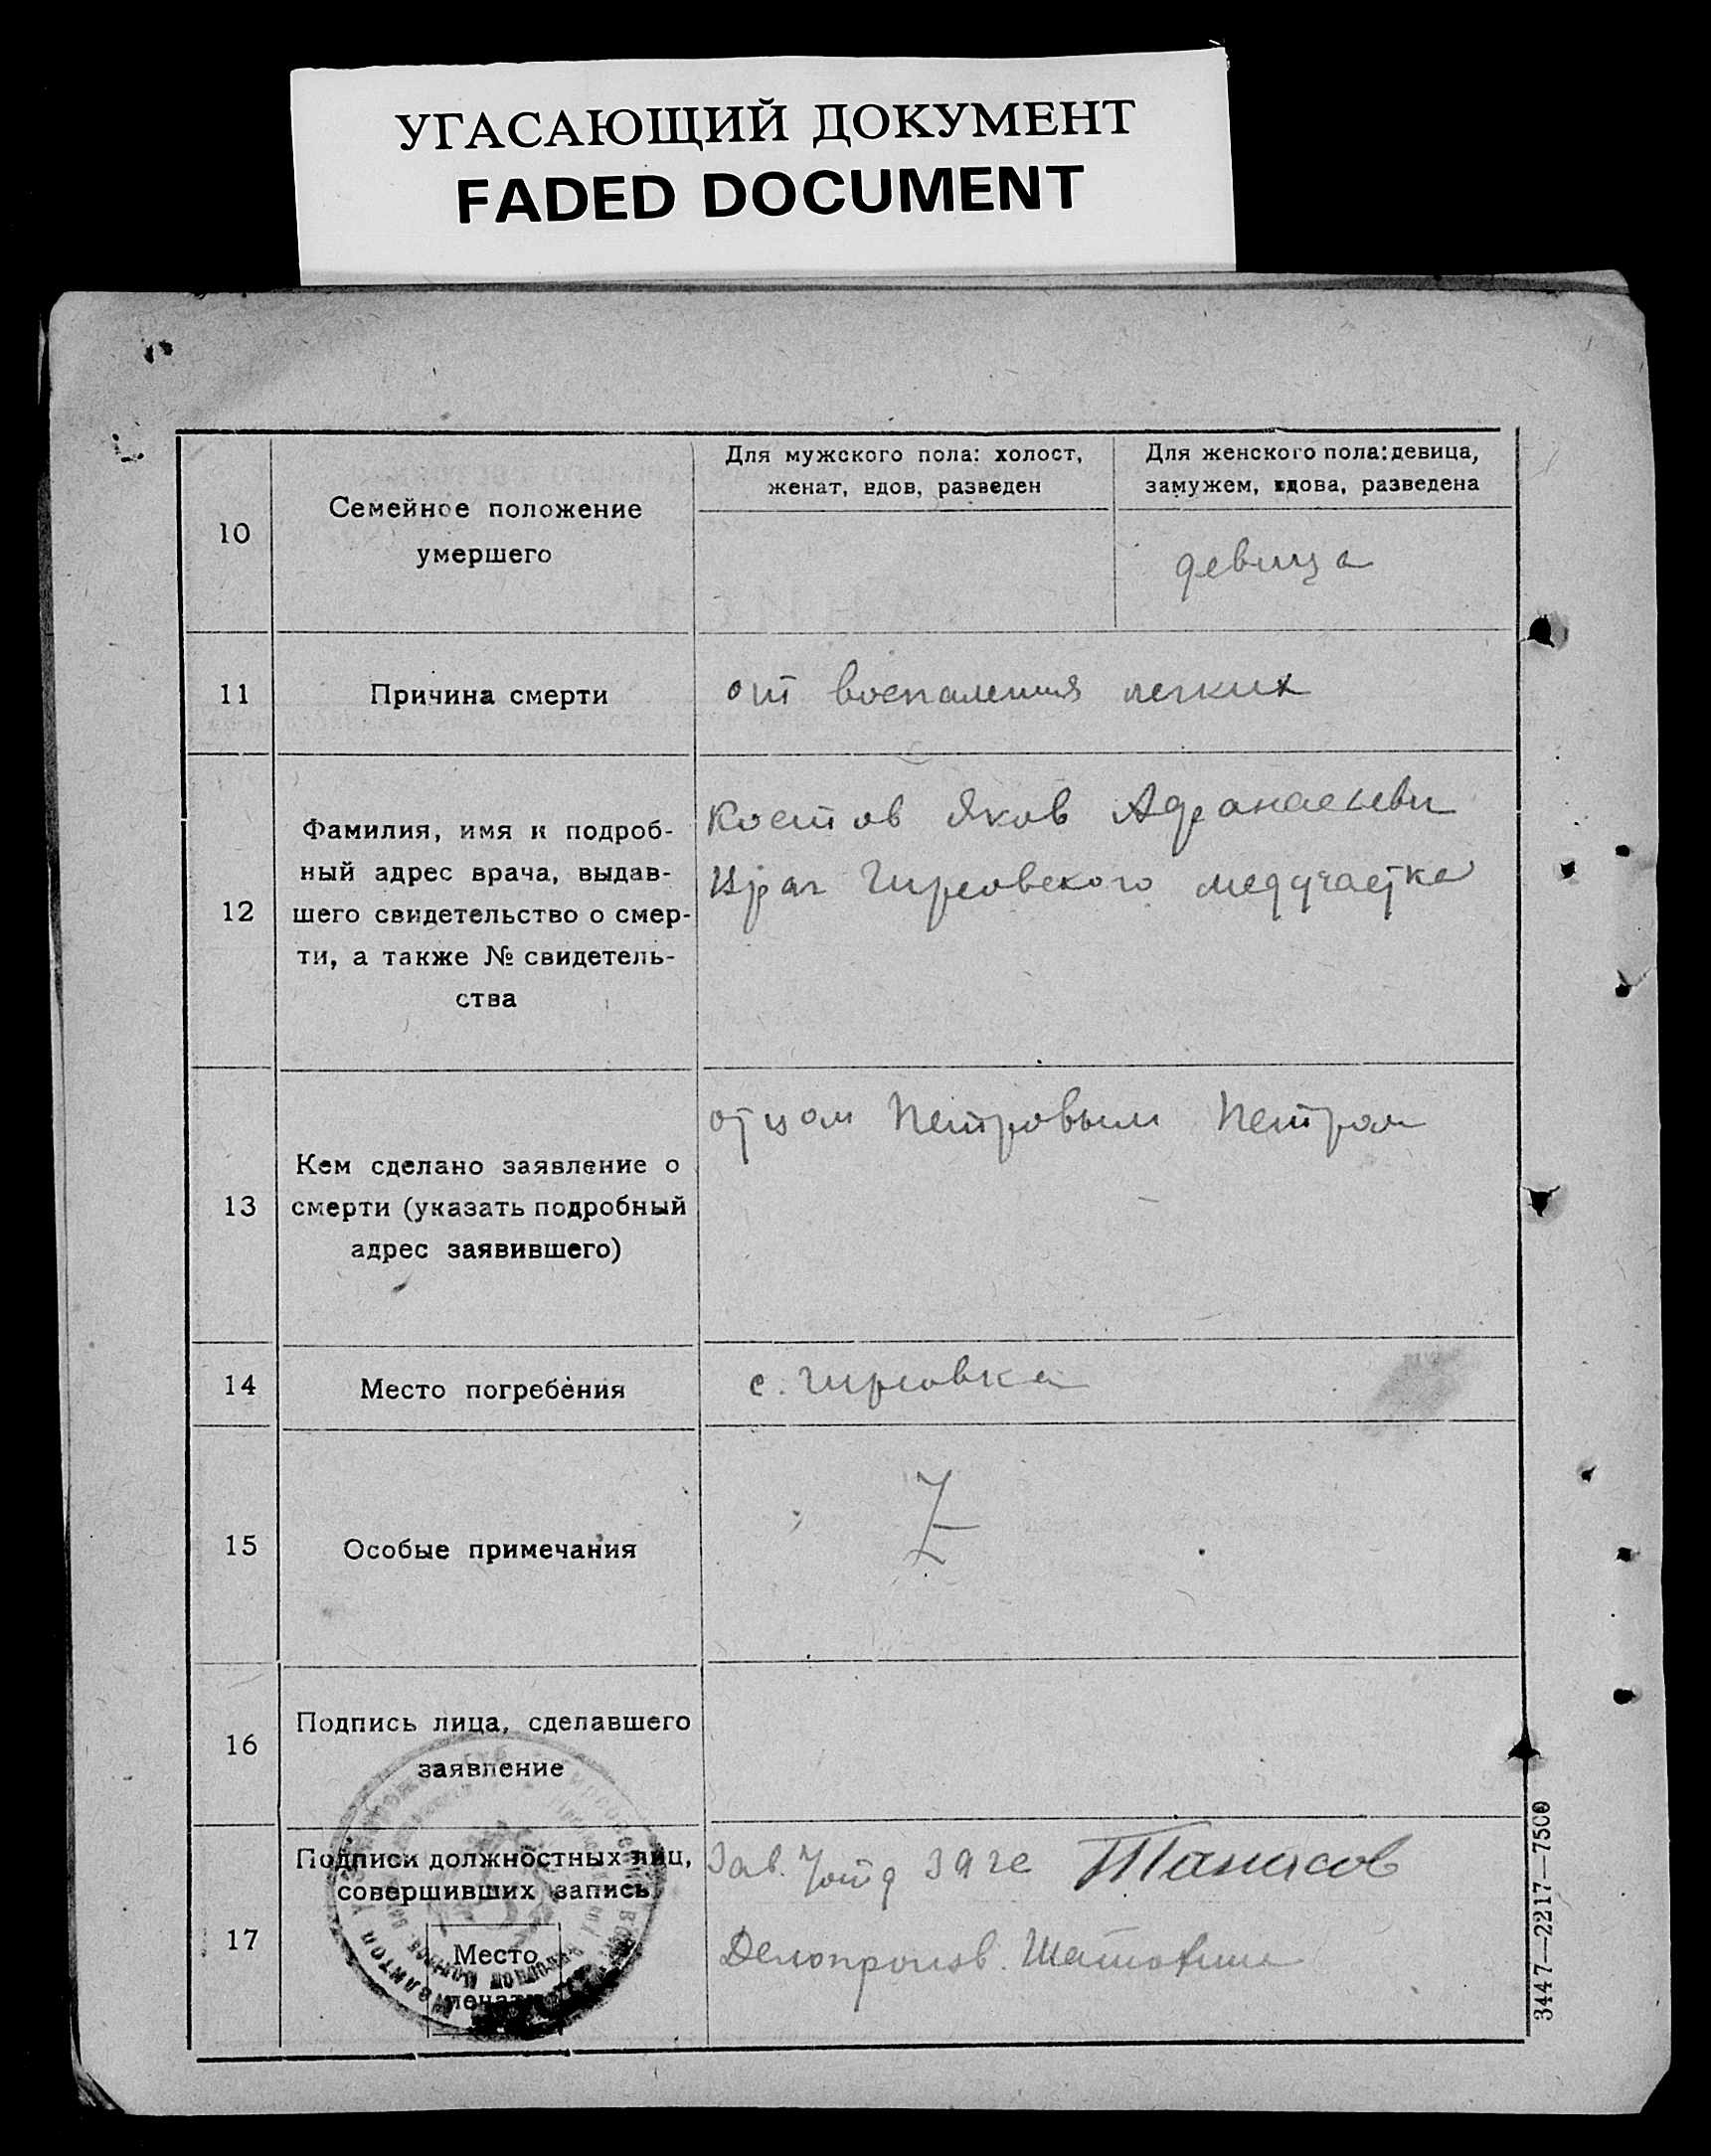 УГАСАЮЩИЙ ДОКУМЕНТ
FADED DOCUMENT
10
Семейное положение
умершего
Для мужского пола: холост,
женат, вдов, разведен
Для женского пола: девица,
замужем, вдова, разведена
девица
11
Причина смерти
от воспаления легких
12
Фамилия, имя и подроб-
ный адрес врача, выдав-
шего свидетельство о смер-
ти, а также № свидетель-
ства
Костов Яков
Врач Гирсовского медучастка
13
Кем сделано заявление о
смерти (указать подробный
адрес заявившего)
отцом Петровым Петром
14
Место погребения
с. Гирсовка
15
Особые примечания
Z
16
Подпись лица, сделавшего
заявление
17
Подписи должностных лиц,
совершивших запись
Место
печати
Зав.
Танасов
Делопроизв.
3447—2217—7500